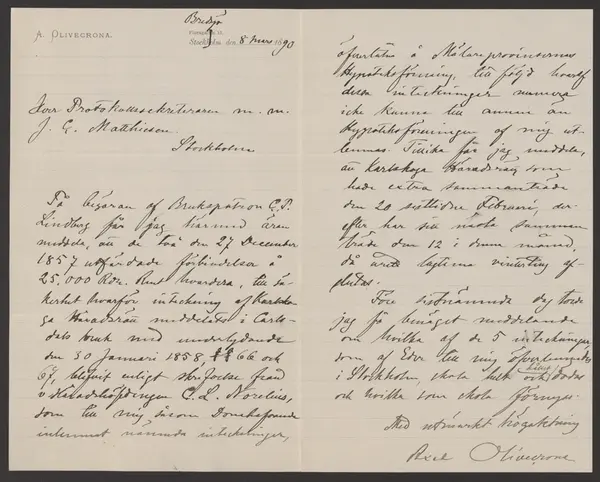 A. OLIVECRONA.
Bredsjö
Stockholm den 8 mars 1890
Herr Protokollssekreteraren m. m.
J. G. Matthiesen
Stockholm
På begäran af Brukspatron C. P.
Lindberg får jag härmed äran
meddela, att de två den 27 December
1857 utfärdade förbindelser å
25,000 Rdr. Rmt hvardera, till sä-
kerhet hvarför inteckning af Karlsko-
ga Häradsrätt meddelats i Carls-
dals bruk med underlydande
den 30 Januari 1858, §§ 66 och
67, blifvit enligt skrifvelse från
v Häradshöfdingen C. L. Norelius,
som till mig såsom Domhafvande
insänt nämnda inteckningar,
öfverlåtna å Mälareprovinsernas
Hypoteksförening, till följd hvaraf
dessa inteckningar numera
icke kunna till annan än
Hypoteksföreningen af mig ut-
lemnas. Tillika får jag meddela,
att Karlskoga Häradsrätt som
hade extra sammanträde
den 20 sistlidne Februari, der-
efter har sitt nästa samman
träde den 12 i denne månad,
då årets lagtima vinterting af-
slutas.
Före sistnämnde dag torde
jag få benäget meddelande
om hvilka af de 5 inteckningar
som af Eder till mig öfverlemnades
i Stockholm skola helt och hållet dödas
och hvilka som skola förnyas.
Med utmärkt högaktning
Axel Olivecrona